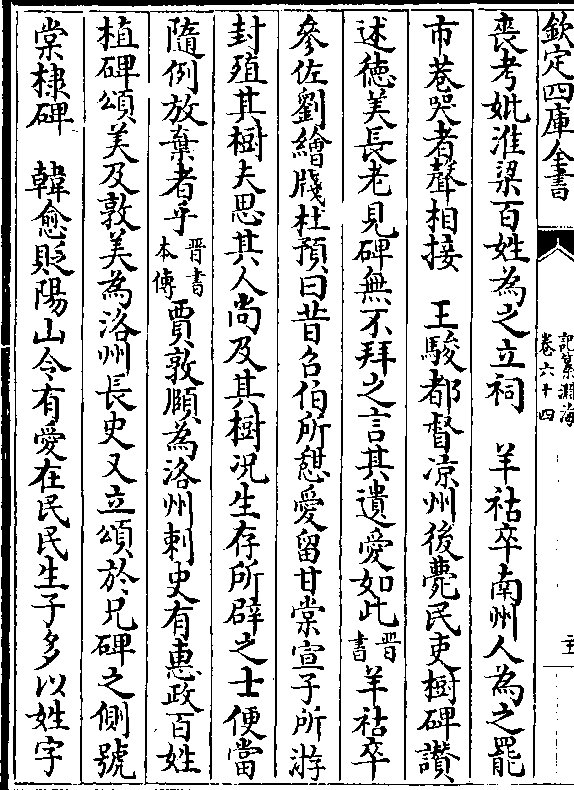 欽定四庫全書
記纂淵海
卷六十四
五
喪考妣淮梁百姓為之立祠　羊祜卒南州人為之罷
市巷哭者聲相接　王駿都督凉州後薨民吏樹碑讃
述徳美長老見碑無不拜之言其遺愛如此晋書羊祜卒
參佐劉繪牋杜預曰昔召伯所憇愛留甘棠宣子所游
封殖其樹夫思其人尚及其樹况生存所辟之士便當
隨例放棄者乎晋書本傳賈敦頤為洛州刺史有惠政百姓
植碑頌美及敦美為洛州長史又立頌於兄碑之側號
棠棣碑　韓愈貶陽山令有愛在民民生子多以姓字